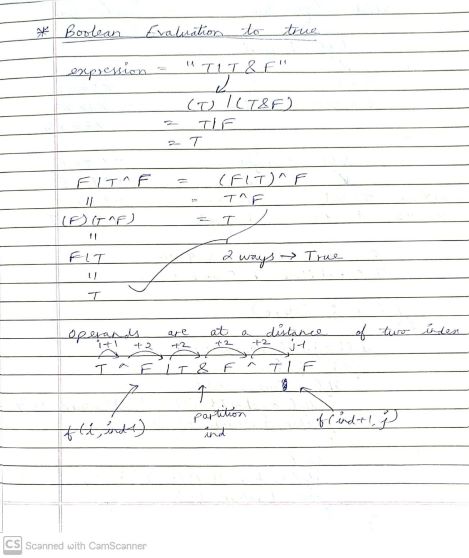 * Boolean Evaluation to true
expression = "T|T&F"
(T) | (T&F)
= T|F
= T
F|T^F = (F|T)^F
" = T^F
(F)|(T^F) = T
"
F|T 2 ways → True
"
T
Operands are at a distance of two index
i+1 +2 +2 +2 +2 j-1
T ^ F | T & F ^ T | F
partition
f(i, ind-1) ind f(ind+1, j)
CS Scanned with CamScanner